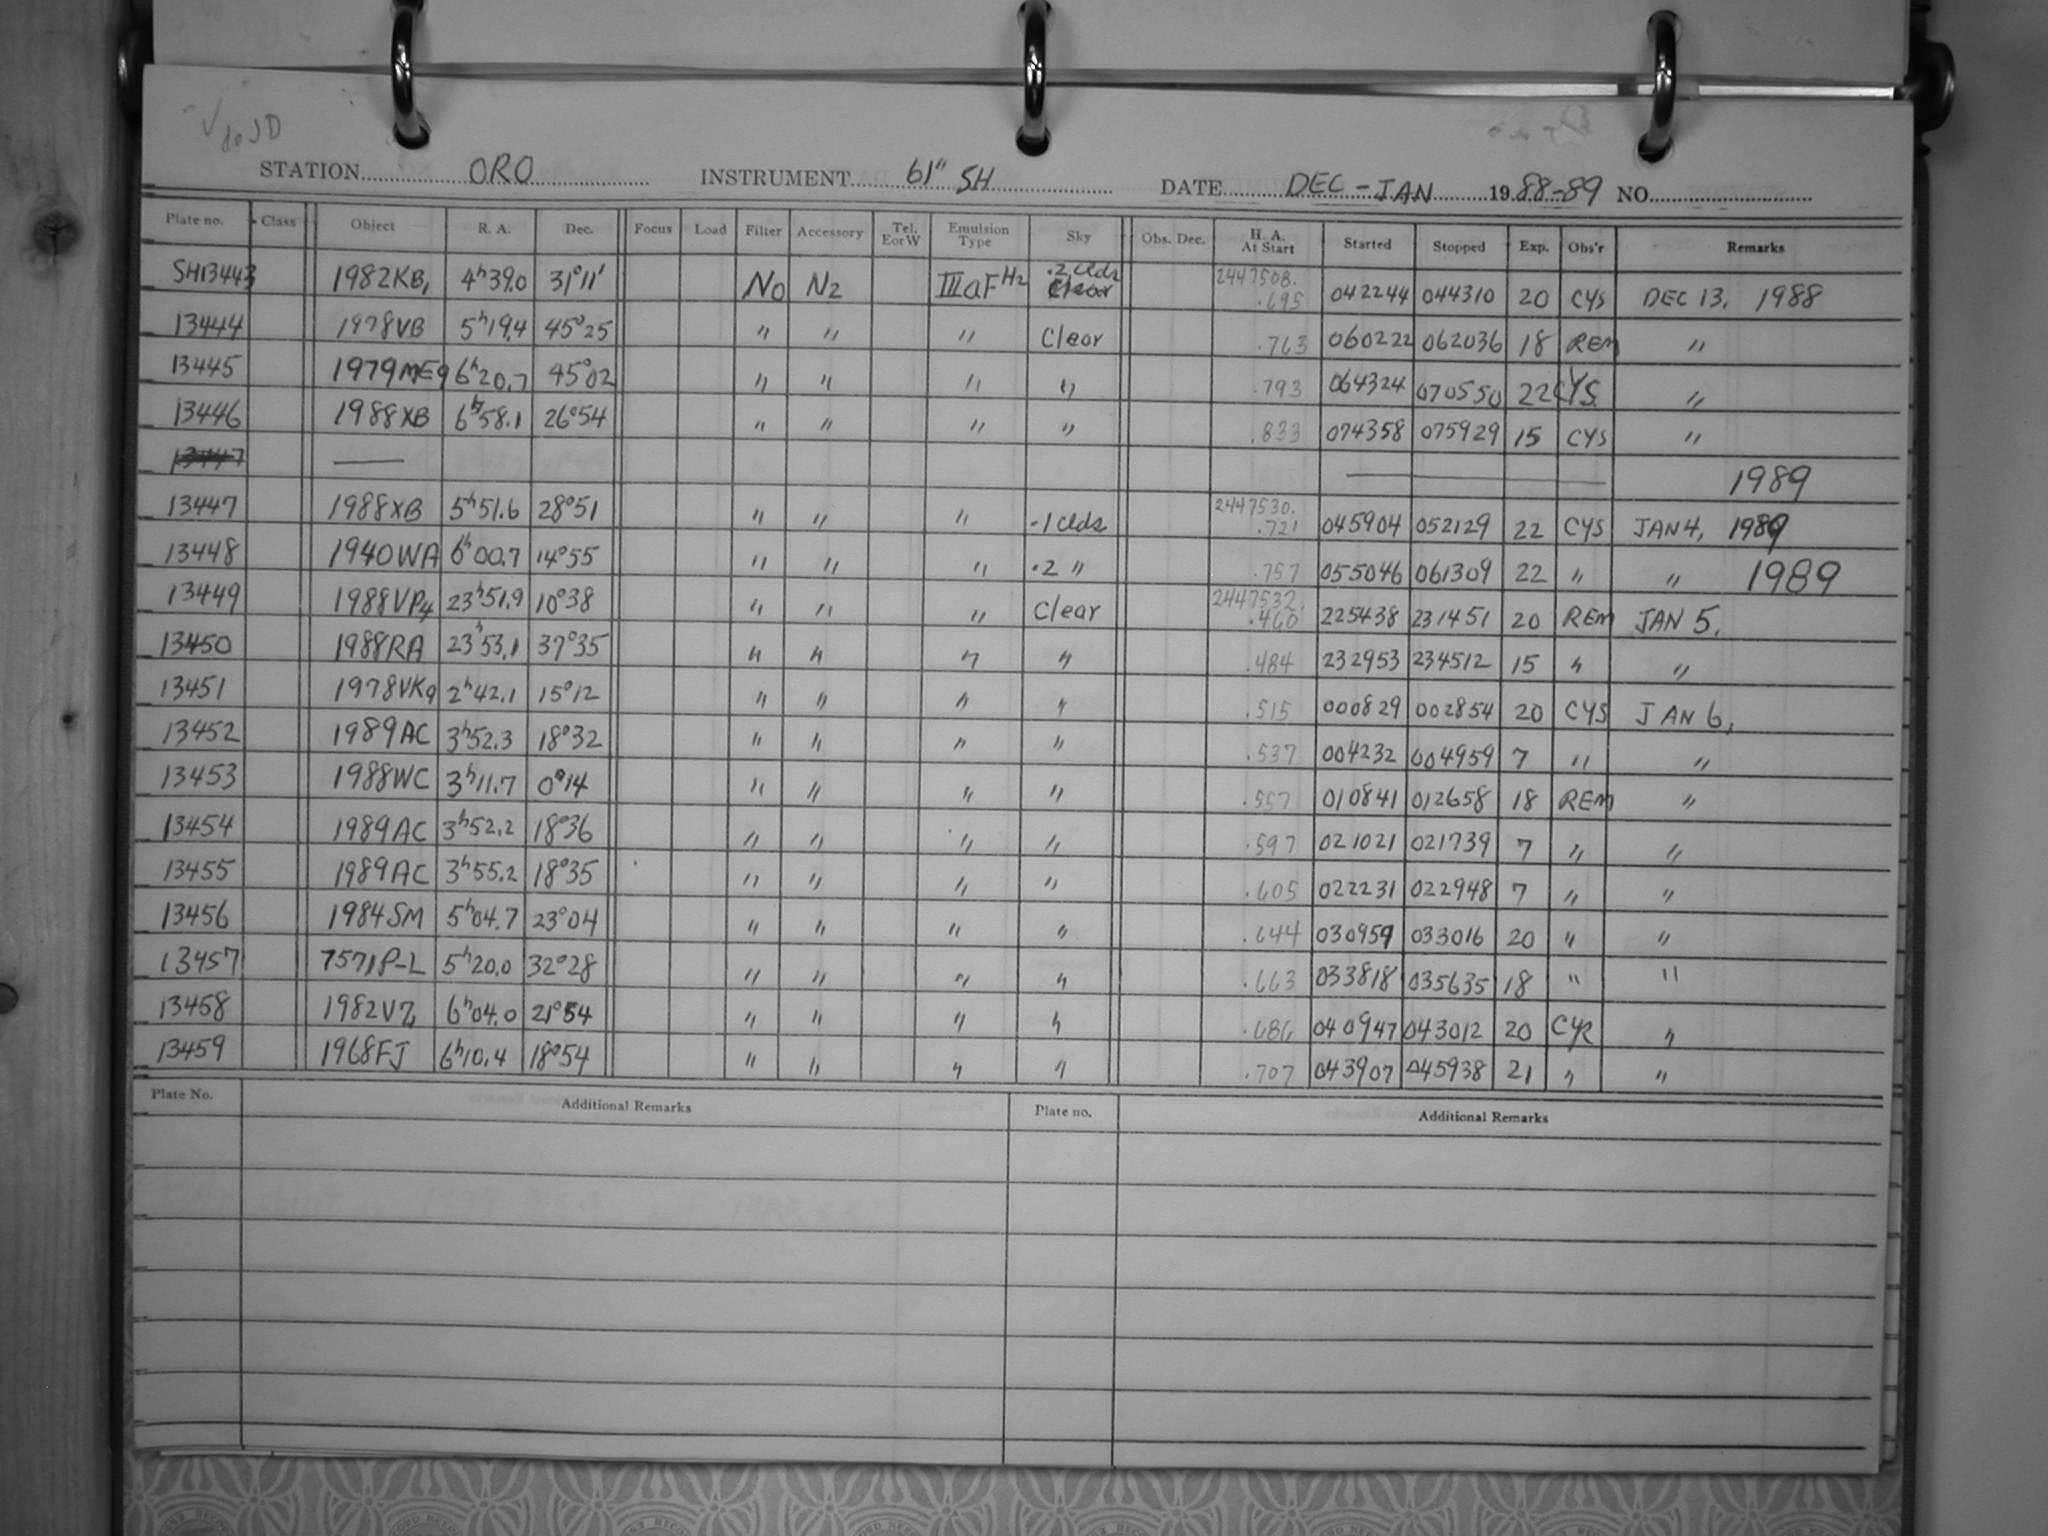 √ to JD
STATION ORO INSTRUMENT 61" SH DATE DEC - JAN 1988-89 NO.
Plate no. Class Object R. A. Dec. Focus Load Filter Accessory Tel. E or W Emulsion Type Sky Obs. Dec. H. A. At Start Started Stopped Exp. Obs'r Remarks
SH13443 1982KB₁ 4ʰ39.0 31°11' No N2 IIIaF H2 .2 Clds Clear 2447508. .695 042244 044310 20 CYS DEC 13, 1988
13444 1978VB 5ʰ19.4 45°25 " " " Clear .763 060222 062036 18 REM "
13445 1979ME9 6ʰ20.7 45°02 " " " " .793 064324 070550 22 CYS "
13446 1988XB 6ʰ58.1 26°54 " " " " .833 074358 075929 15 CYS "
13447 — — 1989
13447 1988XB 5ʰ51.6 28°51 " " " .1 Clds 2447530. .721 045904 052129 22 CYS JAN 4, 1989
13448 1940WA 6ʰ00.7 14°55 " " " .2 " .757 055046 061309 22 " " 1989
13449 1988VP4 23ʰ51.9 10°38 " " " Clear 2447532. .460 225438 231451 20 REM JAN 5,
13450 1988RA 23ʰ53.1 37°35 " " " " .484 232953 234512 15 " "
13451 1978VK9 2ʰ42.1 15°12 " " " " .515 000829 002854 20 CYS JAN 6,
13452 1989AC 3ʰ52.3 18°32 " " " " .537 004232 004959 7 " "
13453 1988WC 3ʰ11.7 0°14 " " " " .557 010841 012658 18 REM "
13454 1989AC 3ʰ52.2 18°36 " " " " .597 021021 021739 7 " "
13455 1989AC 3ʰ55.2 18°35 " " " " .605 022231 022948 7 " "
13456 1984SM 5ʰ04.7 23°04 " " " " .644 030959 033016 20 " "
13457 7571P-L 5ʰ20.0 32°28 " " " " .663 033818 035635 18 " "
13458 1982VZ 6ʰ04.0 21°54 " " " " .686 040947 043012 20 CYR "
13459 1968FJ 6ʰ10.4 18°54 " " " " .707 043907 045938 21 " "
Plate No. Additional Remarks Plate no. Additional Remarks